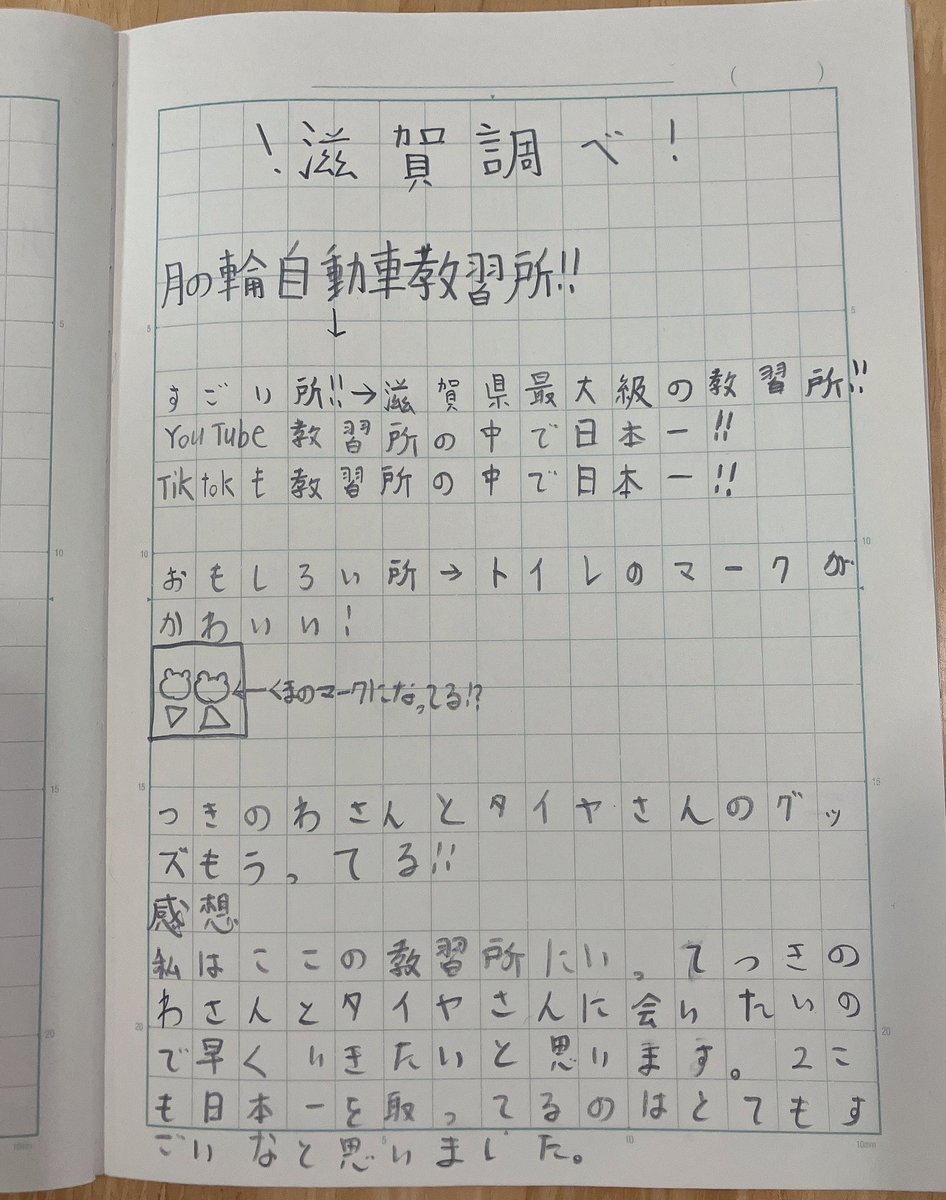 ！滋賀調べ！
月の輪自動車教習所!!
↓
すごい所!!→滋賀県最大級の教習所!!
YouTube教習所の中で日本一!!
Tiktokも教習所の中で日本一!!
おもしろい所→トイレのマークが
かわいい！
←くまのマークになってる!?
つきのわさんとタイヤさんのグッ
ズもうってる!!
感想
私はここの教習所にいってつきの
わさんとタイヤさんに会いたいの
で早くいきたいと思います。2こ
も日本一を取ってるのはとてもす
ごいなと思いました。